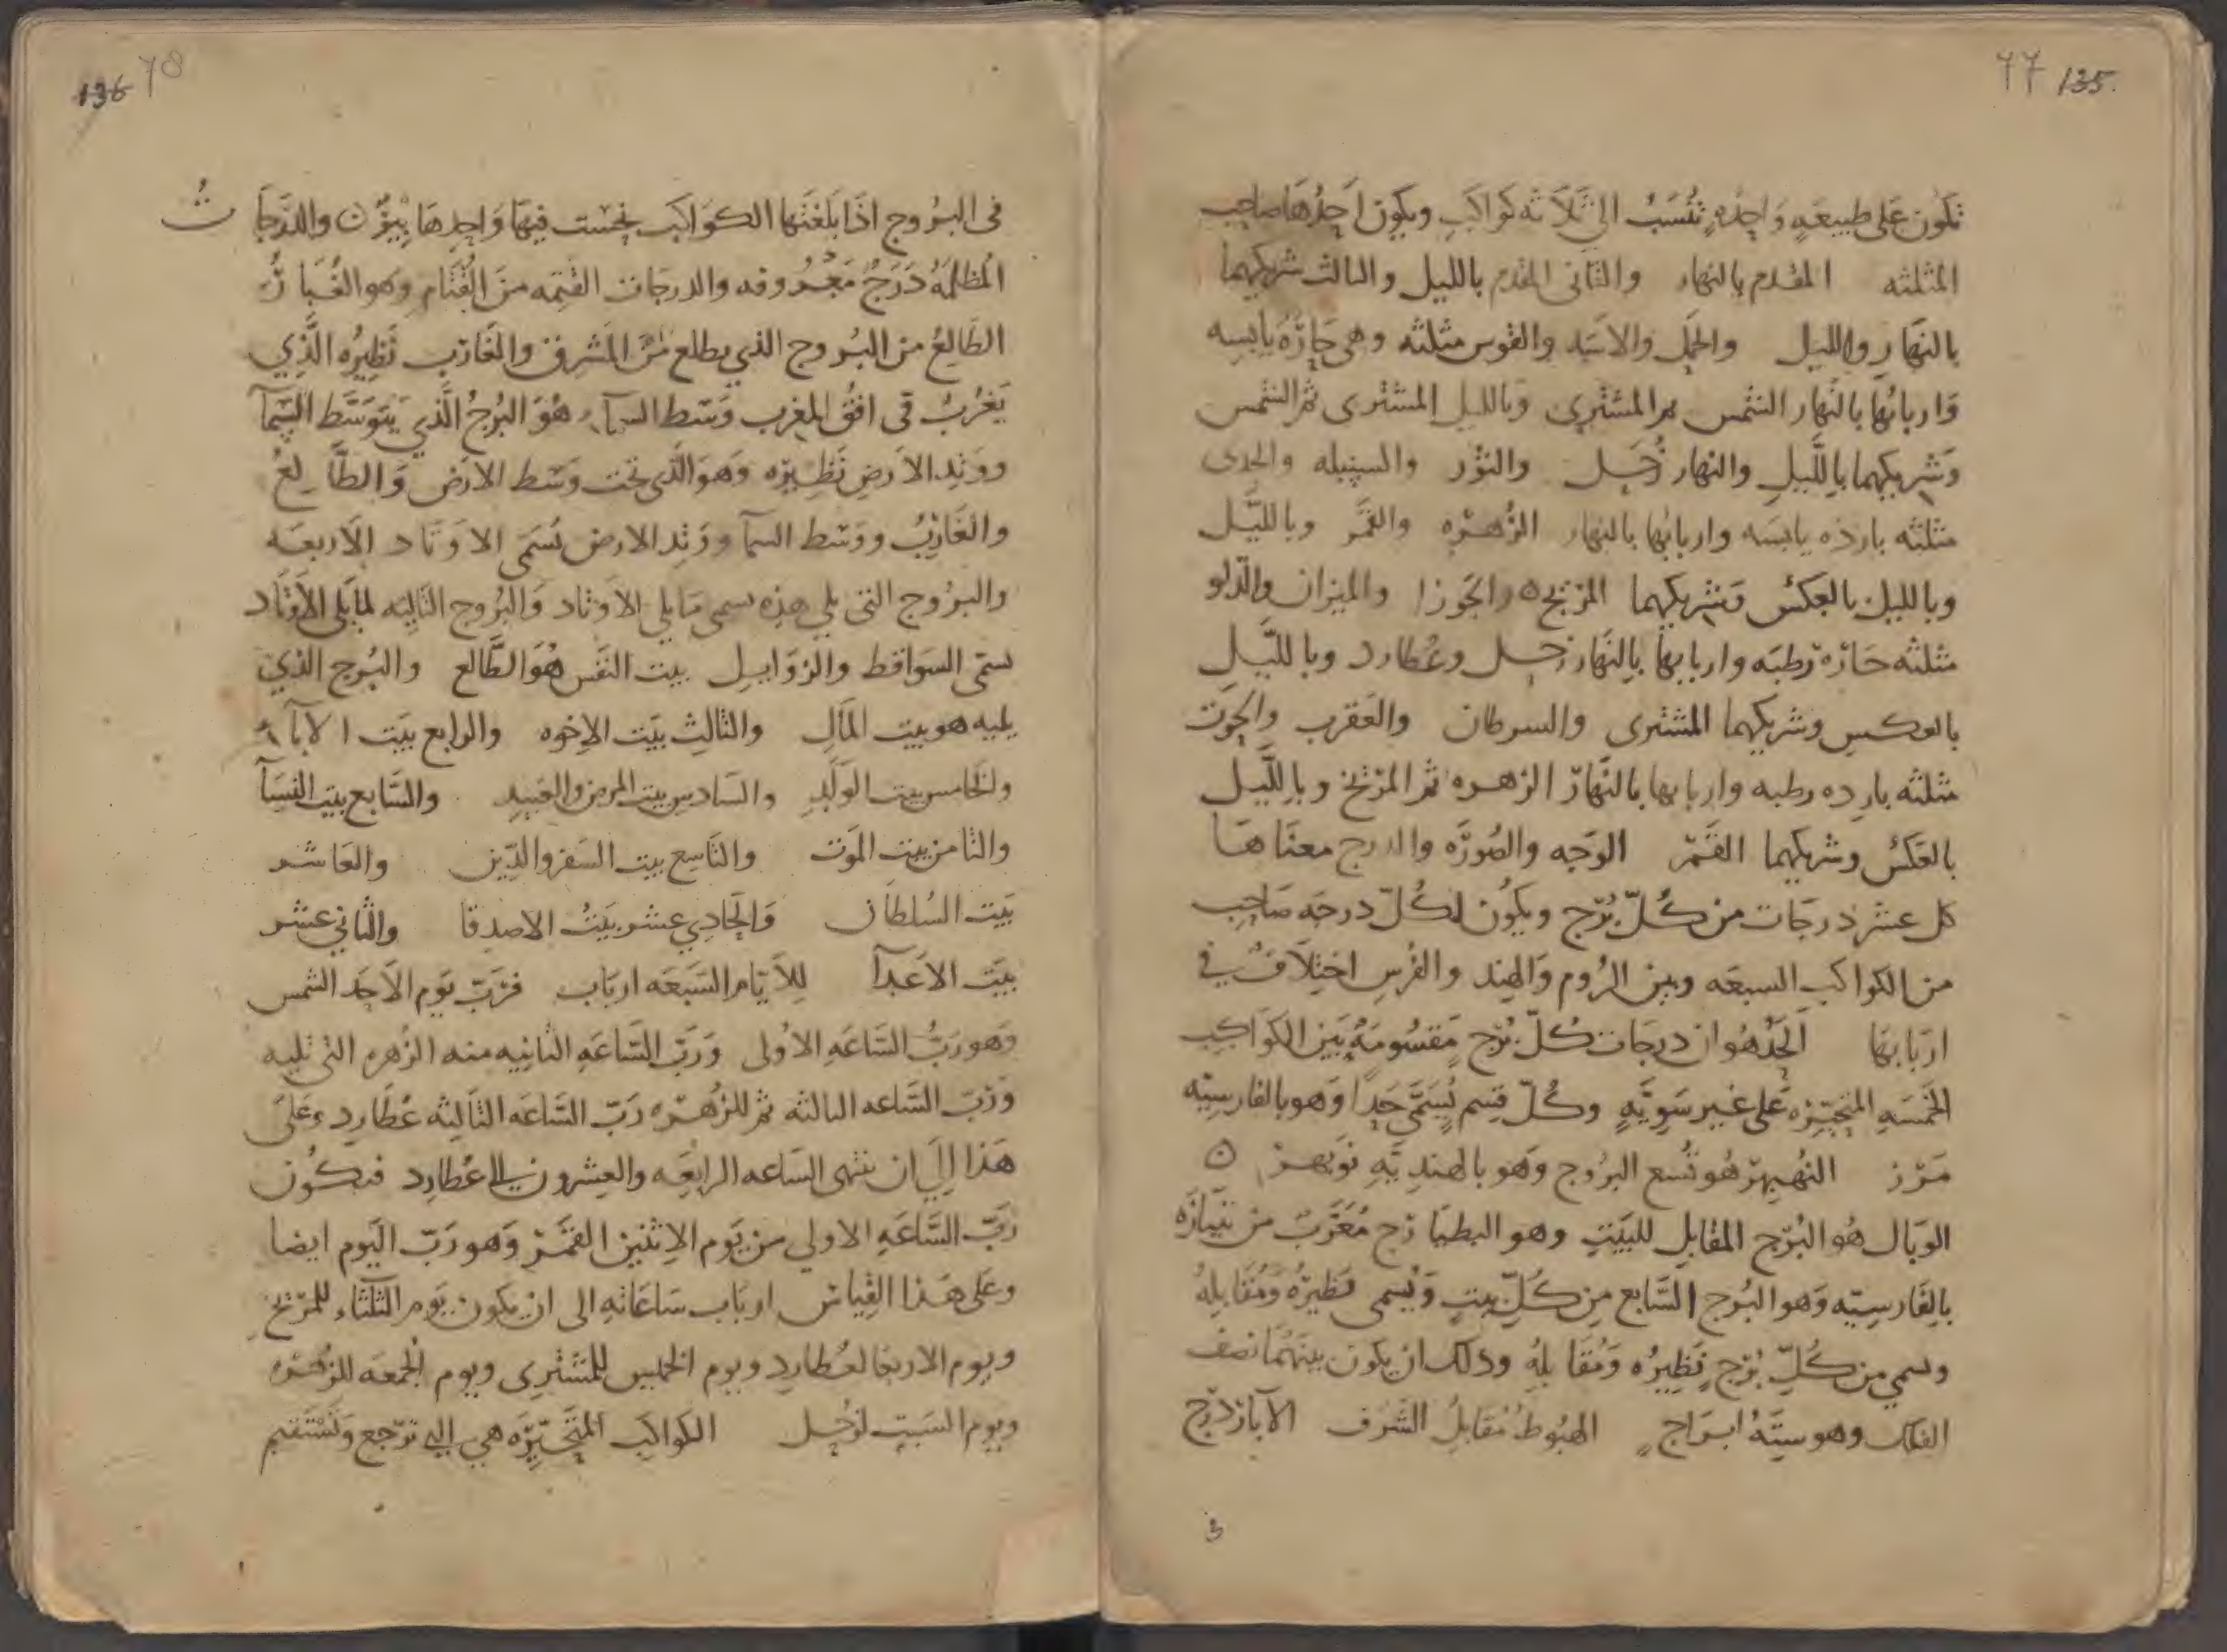 77 135
تكون على طبيعه واحده تنسب الى ثلاثه كواكب ويكون احدها صاحب
المثلثه المقدم بالنهار والثاني المقدم بالليل والثالث شريكهما
بالنهار والليل والحمل والاسد والقوس مثلثه وهي حاره يابسه
واربابها بالنهار الشمس ثم المشترى وبالليل المشترى ثم الشمس
وشريكهما بالليل والنهار زحل والثور والسنبله والجدى
مثلثه بارده يابسه واربابها بالنهار الزهره والقمر وبالليل
وبالليل بالعكس وشريكهما المريخ ه والجوزا والميزان والدلو
مثلثه حاره رطبه واربابها بالنهار زحل وعطارد وبالليل
بالعكس وشريكهما المشترى والسرطان والعقرب والحوت
مثلثه بارده رطبه واربابها بالنهار الزهره ثم المريخ وبالليل
بالعكس وشريكهما القمر الوجه والصوره والدرج معناها
كل عشر درجات من كل برج ويكون لكل درجه صاحب
من الكواكب السبعه وبين الروم والهند والفرس اختلاف في
اربابها الحد هو ان درجات كل برج مقسومه بين الكواكب
الخمسه المتحيزه على غير سويه وكل قسم يسمى حدا وهو بالفارسيه
مرز النهبهر هو تسع البروج وهو بالهنديه نوبهر ن
الوبال هو البرج المقابل للبيت وهو البطيارج معرب من بتياره
بالفارسيه وهو البرج السابع من كل بيت ويسمى نظيره ومقابله
وسمي من كل برج نظيره ومقابله وذلك ان يكون بينهما نصف
الفلك وهو سته ابراج الهبوط مقابل الشرف الآبار درج
136 78
في البروج اذا بلغتها الكواكب نحست فيها واحدها بير ن والدرجات
المظلمه درج معروفه والدرجات القتمه من القتام وهو الغبار
الطالع من البروج الذي يطلع من المشرق والغارب نظيره الذي
يغرب في افق المغرب وسط السماء هو البرج الذي يتوسط السمآ
ووتد الارض نظيره وهو الذي تحت وسط الارض والطالع
والغارب ووسط السمآ ووتد الارض تسمى الاوتاد الاربعه
والبروج التي يلي هذه تسمى مايلي الاوتاد والبروج التاليه لما يلى الاوتاد
تسمى السواقط والزوايل بيت النفس هو الطالع والبرج الذي
يليه هو بيت المال والثالث بيت الاخوه والرابع بيت الابآء
والخامس بيت الولد والسادس بيت المرض والعبيد والسابع بيت النسآ
والثامن بيت الموت والتاسع بيت السفر والدين والعاشر
بيت السلطان والحادي عشر بيت الاصدقا والثاني عشر
بيت الاعدآ للايام السبعه ارباب فرب يوم الاحد الشمس
وهو رب الساعه الاولى ورب الساعه الثانيه منه الزهره التي تليه
ورب الساعه الثالثه ثم للزهره رب الساعه الثالثه عطارد وعلى
هذا الى ان تنتهى الساعه الرابعه والعشرون الى عطارد فتكون
رب الساعه الاولى من يوم الاثنين القمر وهو رب اليوم ايضا
وعلى هذا القياس ارباب ساعاته الى ان يكون يوم الثلثاء للمريخ
ويوم الاربعا لعطارد ويوم الخميس للمشترى ويوم الجمعه للزهره
ويوم السبت لزحل الكواكب المتحيزه هي التي ترجع وتستقيم